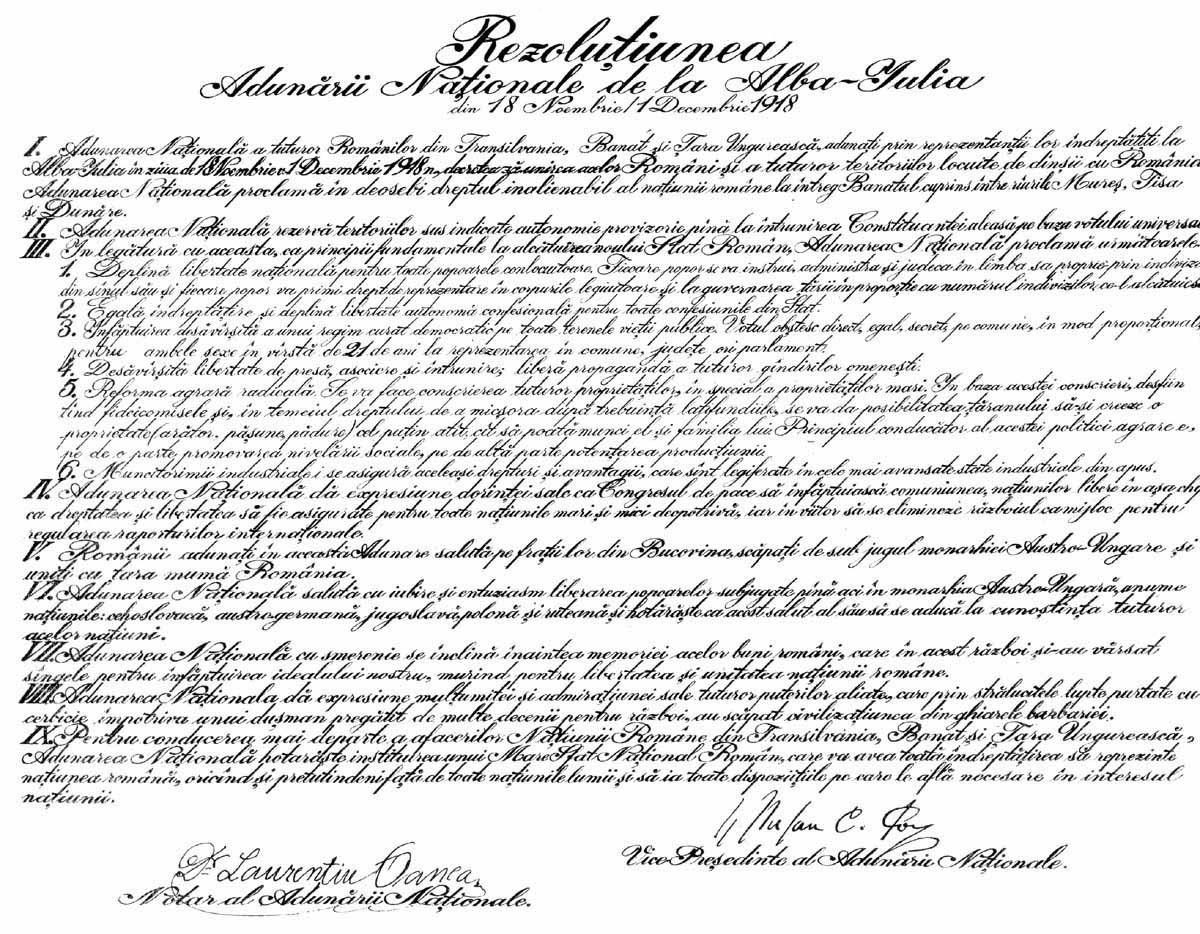 Rezoluțiunea
Adunării Naționale de la Alba-Iulia
din 18 Noembrie/1 Decembrie 1918
I. Adunarea Națională a tuturor Românilor din Transilvania, Banat și Țara Ungurească, adunați prin reprezentanții lor îndreptățiți la
Alba-Iulia în ziua de 18 Noembrie 1 Decembrie 1918 n, decretează unirea acelor Români și a tuturor teritoriilor locuite de dînșii cu România
Adunarea Națională proclamă în deosebi dreptul inalienabil al națiunii române la întreg Banatul cuprins între rîurile Mureș, Tisa
și Dunăre.
II. Adunarea Națională rezervă teritoriilor sus indicate autonomie provizorie pînă la întrunirea Constituantei aleasă pe baza votului universa
III. In legătură cu aceasta, ca principii fundamentale la alcătuirea noului Stat Român, Adunarea Națională proclamă următoarele
1. Deplină libertate națională pentru toate popoarele conlocuitoare. Fiecare popor se va instrui, administra și judeca în limba sa proprie prin indivizi
din sînul său și fiecare popor va primi drept de reprezentare în corpurile legiuitoare și la guvernarea țării în proporție cu numărul indivizilor, ce-l alcătuiesc
2. Egală îndreptățire și deplină libertate autonomă confesională pentru toate confesiunile din Stat.
3. Înfăptuirea desăvîrșită a unui regim curat democratic pe toate terenele vieții publice. Votul obștesc direct, egal, secret, pe comune, în mod proporțional
pentru ambele sexe în vîrstă de 21 de ani la reprezentarea în comune, județe ori parlament.
4. Desăvîrșită libertate de presă, asociere și întrunire; liberă propagandă a tuturor gîndirilor omenești.
5. Reforma agrară radicală. Se va face conscrierea tuturor proprietăților, în special a proprietăților mari. In baza acestei conscrieri, desfiin
țind fideicomisele și, in temeiul dreptului de a micșora după trebuință latifundiile, se va da posibilitatea țăranului să-și creeze o
proprietate (arător, pășune, pădure) cel puțin atît cît să poată munci el și familia lui. Principiul conducător al acestei politici agrare e,
pe de o parte promovarea nivelării sociale, pe de altă parte potențarea producțiunii
6. Muncitorimii industriale i se asigură aceleași drepturi și avantagii, care sînt legiferate în cele mai avansate state industriale din apus.
IV. Adunarea Națională dă expresiune dorinței sale ca Congresul de pace să înfăptuiască comuniunea națiunilor libere în așa chip
ca dreptatea și libertatea să fie asigurate pentru toate națiunile mari și mici deopotrivă, iar în viitor să se elimineze războiul ca mijloc pentru
regularea raporturilor internaționale.
V. Românii adunați in aceasta Adunare salută pe frații lor din Bucovina, scăpați de sub jugul monarhiei Austro-Ungare și
uniți cu țara mumă România.
VI. Adunarea Națională salută cu iubire și entuziasm liberarea popoarelor subjugate pînă aci în monarhia Austro-Ungară, anume
națiunile: cehoslovacă, austro-germană, jugoslavă, polonă și ruteană și hotărăște ca acest salut al său să se aducă la cunoștința tuturor
acelor națiuni.
VII. Adunarea Națională cu smerenie se înclină înaintea memoriei acelor buni români, care în acest război și-au vărsat
sîngele pentru înfăptuirea idealului nostru, murind pentru libertatea și unitatea națiunii române.
VIII. Adunarea Națională dă expresiune mulțumitei și admirațiunei sale tuturor puterilor aliate, care prin strălucitele lupte purtate cu
cerbicie împotriva unui dușman pregătit de multe decenii pentru război, au scăpat civilizațiunea din ghiarele barbariei.
IX. Pentru conducerea mai departe a afacerilor Națiunii Române din Transilvania, Banat și Țara Ungurească,
Adunarea Națională hotărăște instituirea unui Mare Sfat Național Român, care va avea toată îndreptățirea să reprezinte
națiunea română, oricînd și pretutindeni față de toate națiunile lumii și să ia toate dispozițiile pe care le află necesare în interesul
națiunii.
Dr Laurențiu Oanea
Notar al Adunării Naționale.
Vice Președinte al Adunării Naționale.